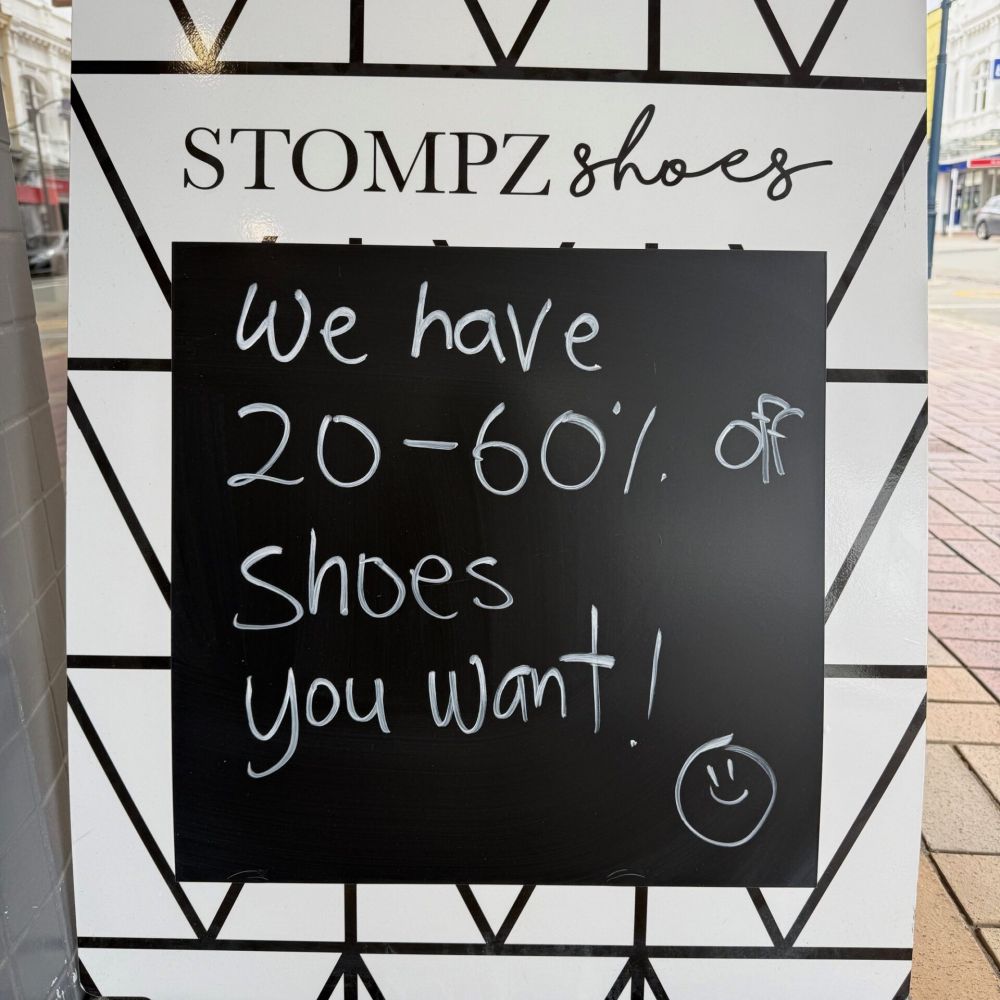 STOMPZ shoes
We have
20-60% off
shoes
you want!